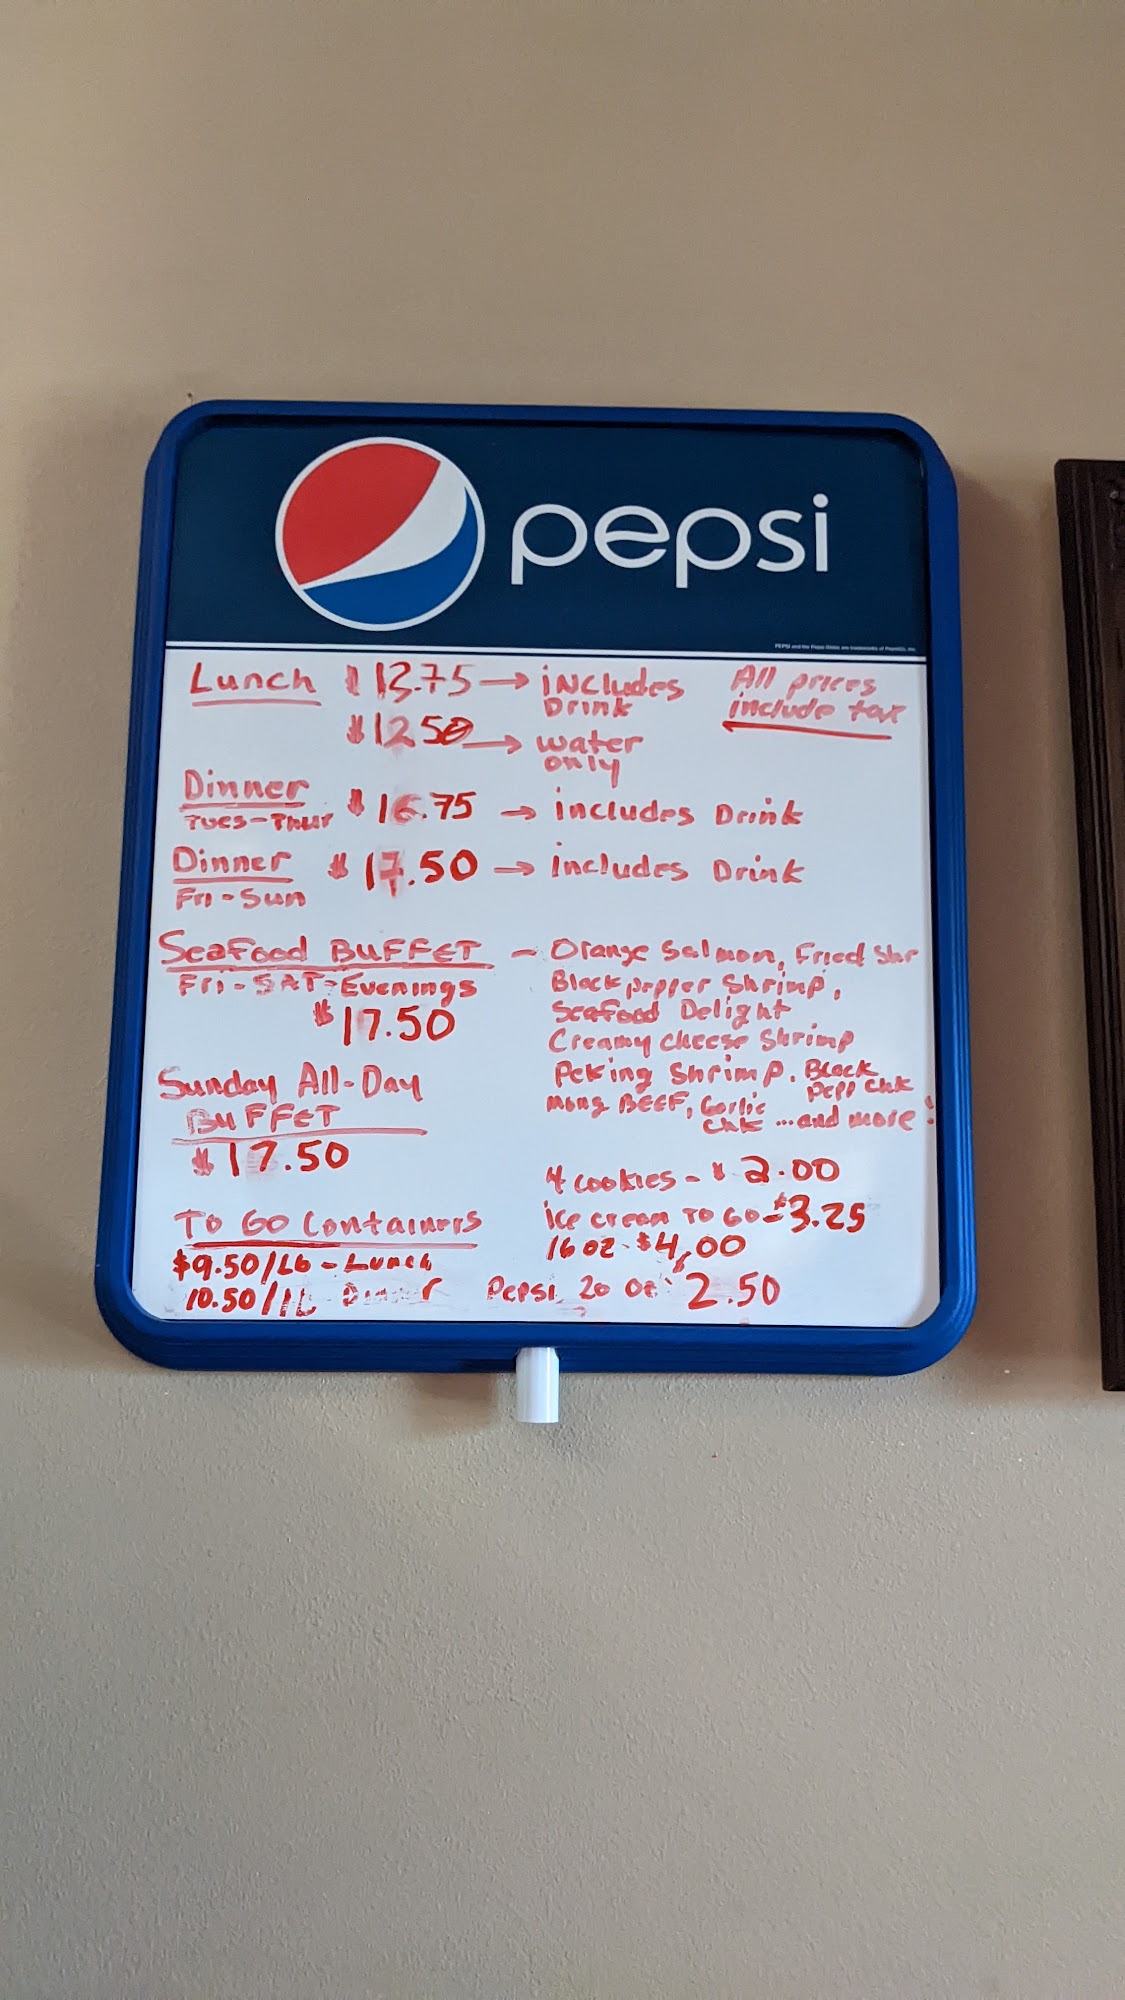 pepsi
PEPSI and the Pepsi Globe are trademarks of PepsiCo, Inc.
Lunch $13.75 → includes Drink
$12.50 → water only
All prices
include tax
Dinner
Tues-Thur $16.75 → includes Drink
Dinner
Fri-Sun $17.50 → includes Drink
Seafood BUFFET
Fri-SAT-Evenings
$17.50
- Orange Salmon, Fried Shr
Black pepper Shrimp,
Seafood Delight
Creamy cheese Shrimp
Peking Shrimp. Black Pepp Chk
Mong BEEF, Garlic Chk ...and more!
Sunday All-Day
BUFFET
$17.50
4 cookies - $2.00
ice cream To GO - $3.25
16 oz - $4.00
Pepsi 20 oz $2.50
To GO Containers
$9.50/Lb - Lunch
10.50/lb - Dinner